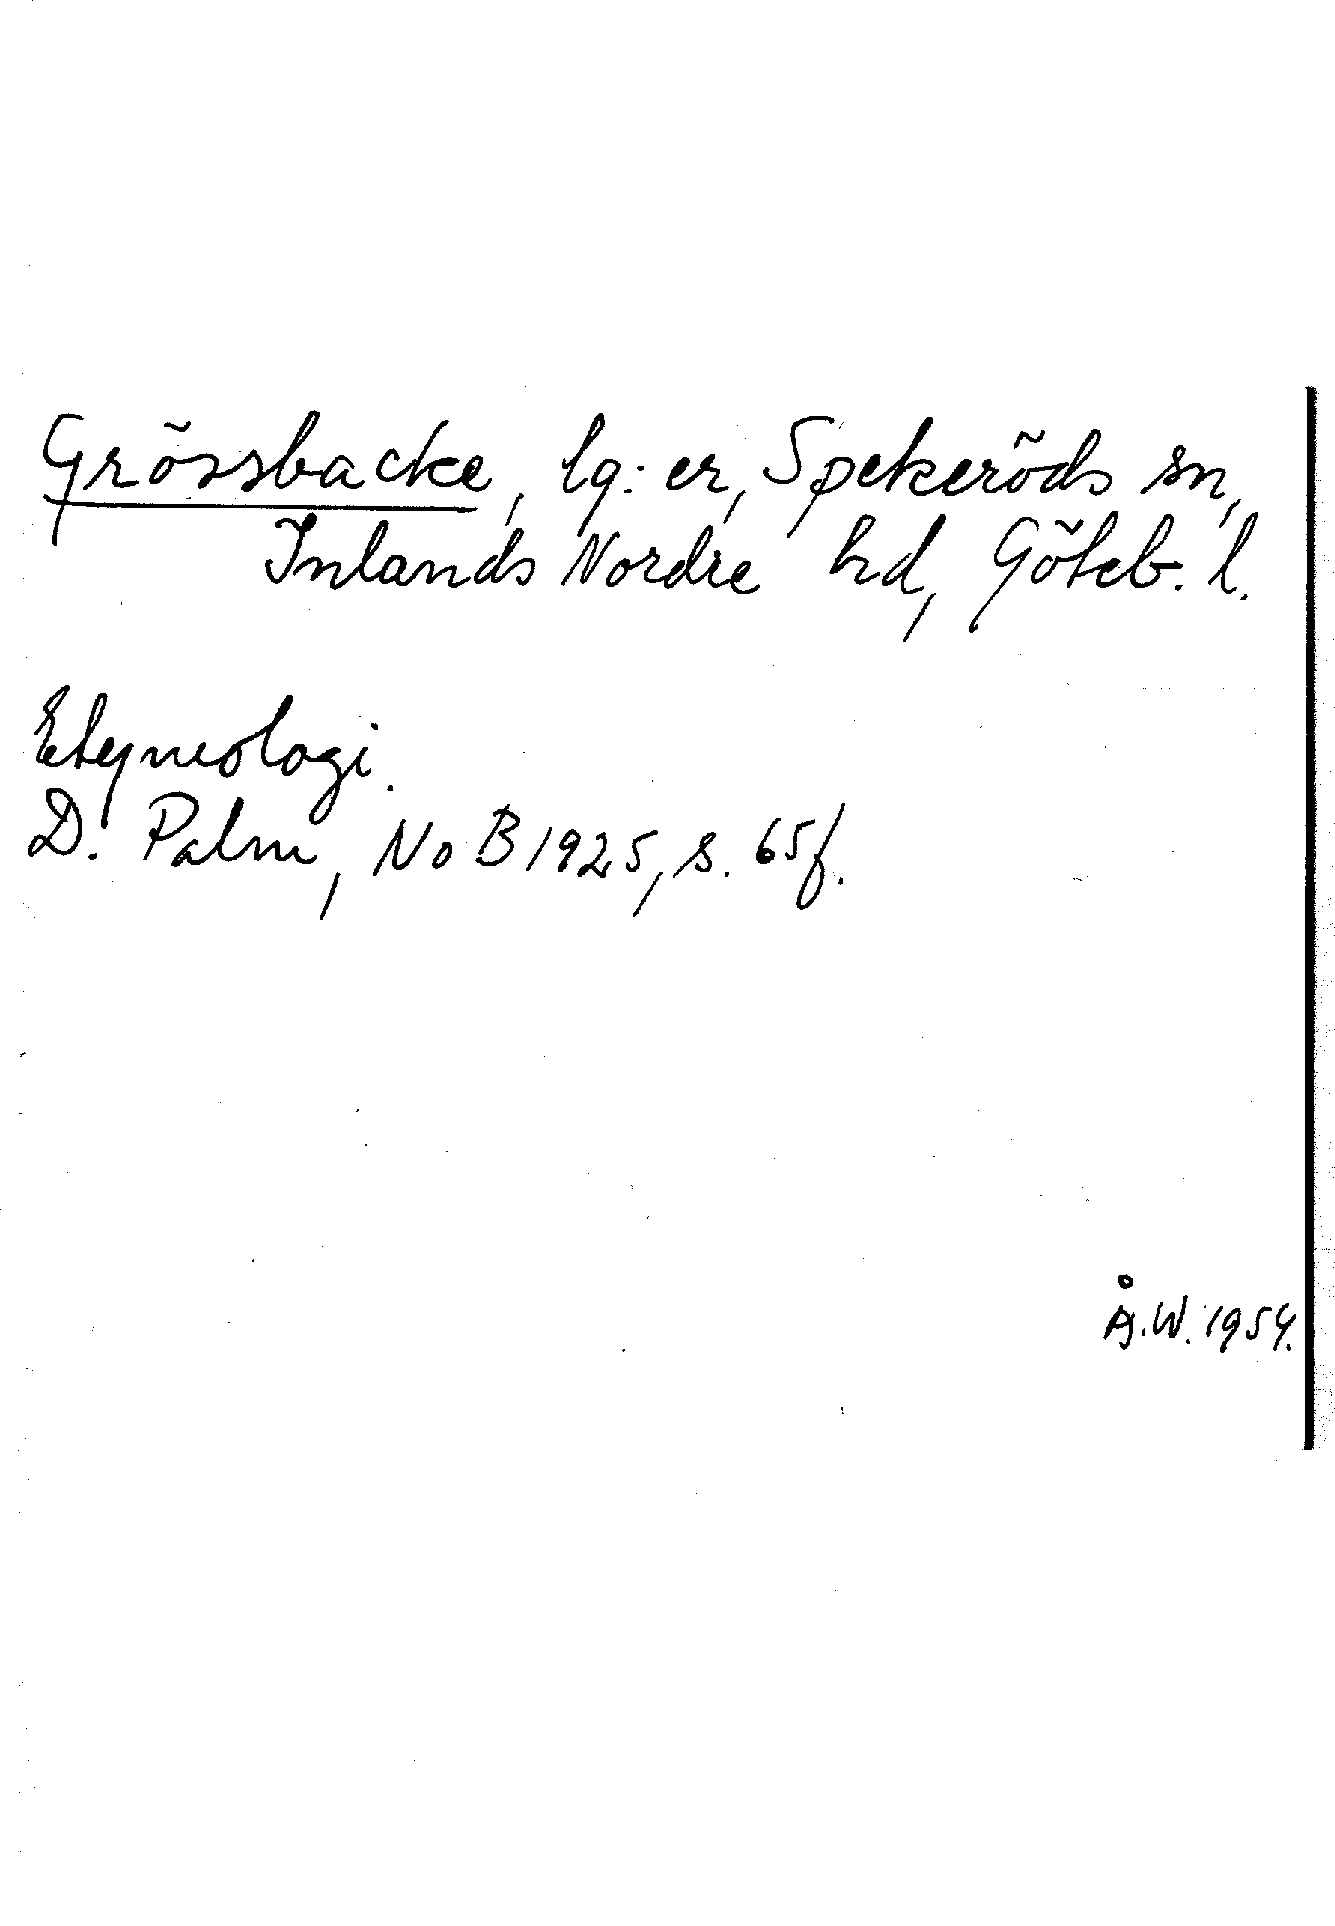 Grössbacke, lg:er, Spekeröds sn,
Inlands Nordre hd, Göteb. l.
Etymologi.
D. Palm, NoB 1925, s. 65f.
Å.W. 1954.